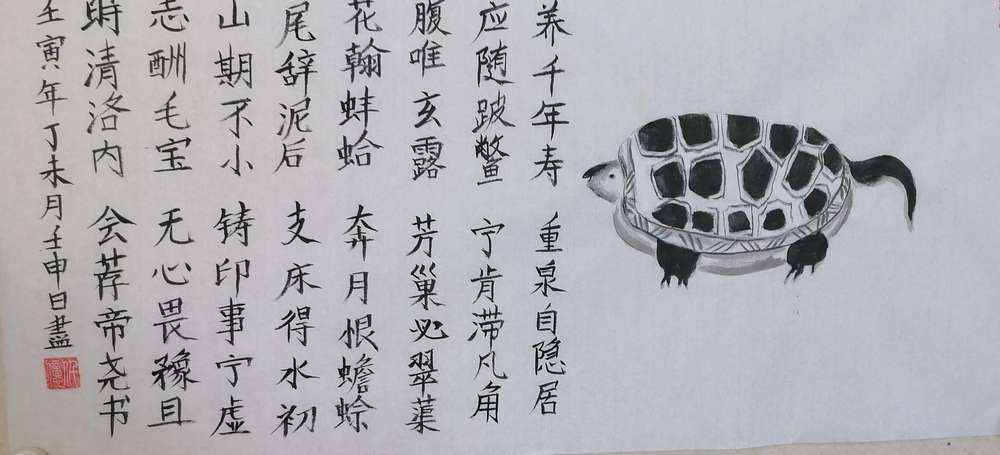 养千年寿 重泉自隐居
应随跛鳖 宁肯滞凡角
腹唯玄露 芳巢必翠蕖
花翰蚌蛤 奔月恨蟾蜍
尾辞泥后 支床得水初
山期不小 铸印事宁虚
志酬毛宝 无心畏豫且
时清洛内 会荐帝尧书
壬寅年丁未月壬申日